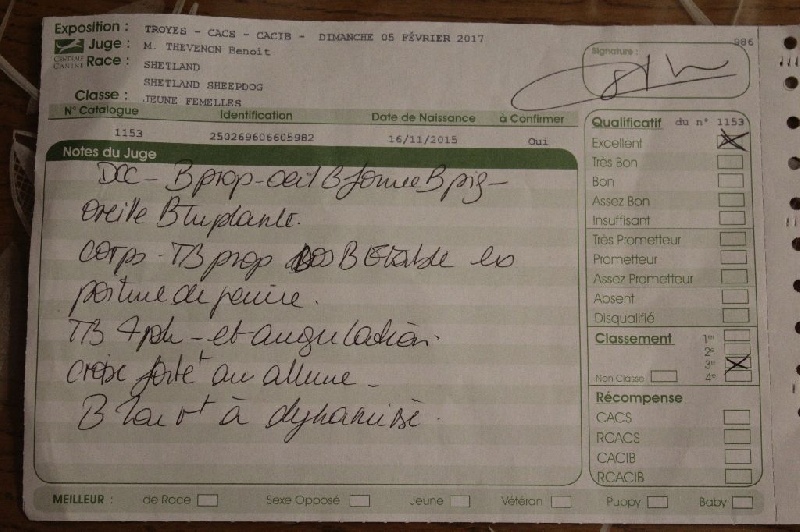 Exposition : TROYES - CACS - CACIB - DIMANCHE 05 FÉVRIER 2017
Juge : M. THEVENON Benoit
Race : SHETLAND
SHETLAND SHEEPDOG
Classe : JEUNE FEMELLES
Signature :
986
N° Catalogue Identification Date de Naissance à Confirmer
1153 250269606605982 16/11/2015 Oui
Notes du Juge
B prop - oeil B forme B pig -
oreille B
corps - TB prop B en
poitrine de
TB - et angulation.
au allure -
B à dynamisé.
Qualificatif du n° 1153
Excellent
Très Bon
Bon
Assez Bon
Insuffisant
Très Prometteur
Prometteur
Assez Prometteur
Absent
Disqualifié
Classement 1er
2e
3e
Non Classé 4e
Récompense
CACS
RCACS
CACIB
RCACIB
MEILLEUR : de Race Sexe Opposé Jeune Vétéran Puppy Baby